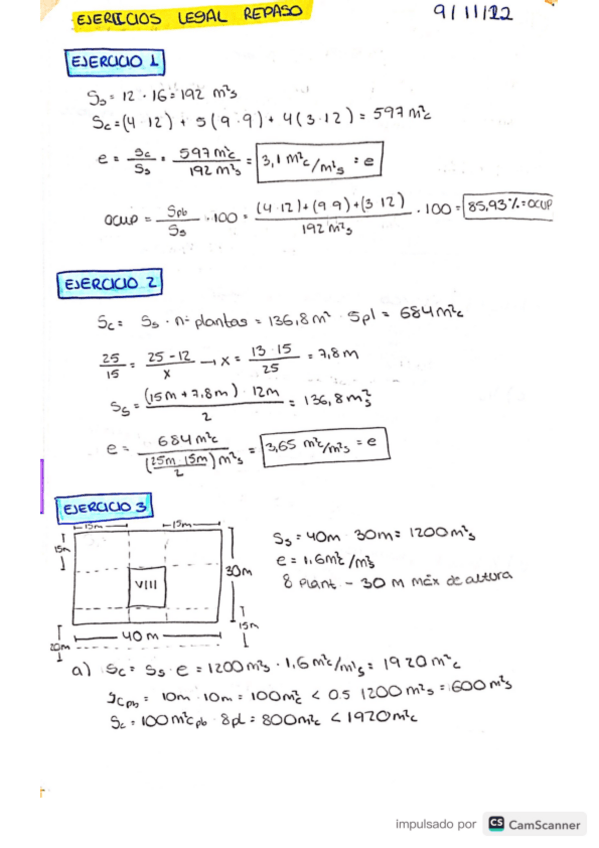 EJERCICIOS LEGAL REPASO 9/11/22
EJERCICIO 1
Ss = 12 · 16 = 192 m²s
Sc = (4 · 12) + 5 (9 · 9) + 4 (3 · 12) = 597 m²c
e = Sc/Ss = 597 m²c / 192 m²s = 3,1 m²c/m²s = e
OCUP = Spb/Ss · 100 = (4 · 12) + (9 · 9) + (3 · 12) / 192 m²s · 100 = 85,93% = OCUP
EJERCICIO 2
Sc = Ss · nº plantas = 136,8 m² · 5 pl = 684 m²c
25/15 = 25 - 12 / x → x = 13 · 15 / 25 = 7,8 m
Ss = (15 m + 7,8 m) · 12 m / 2 = 136,8 m²s
e = 684 m²c / (25m · 15m / 2) m²s = 3,65 m²c/m²s = e
EJERCICIO 3
15m 15m
15m
VIII
30m
15m
40 m
20m
Ss = 40m · 30m = 1200 m²s
e = 1,6 m²c/m²s
8 plant - 30 m máx de altura
a) Sc = Ss · e = 1200 m²s · 1,6 m²c/m²s = 1920 m²c
Scpb = 10m · 10m = 100 m²c < 0.5 1200 m²s = 600 m²s
Sc = 100 m²c pb · 8 pl = 800 m²c < 1920 m²c
impulsado por CS CamScanner